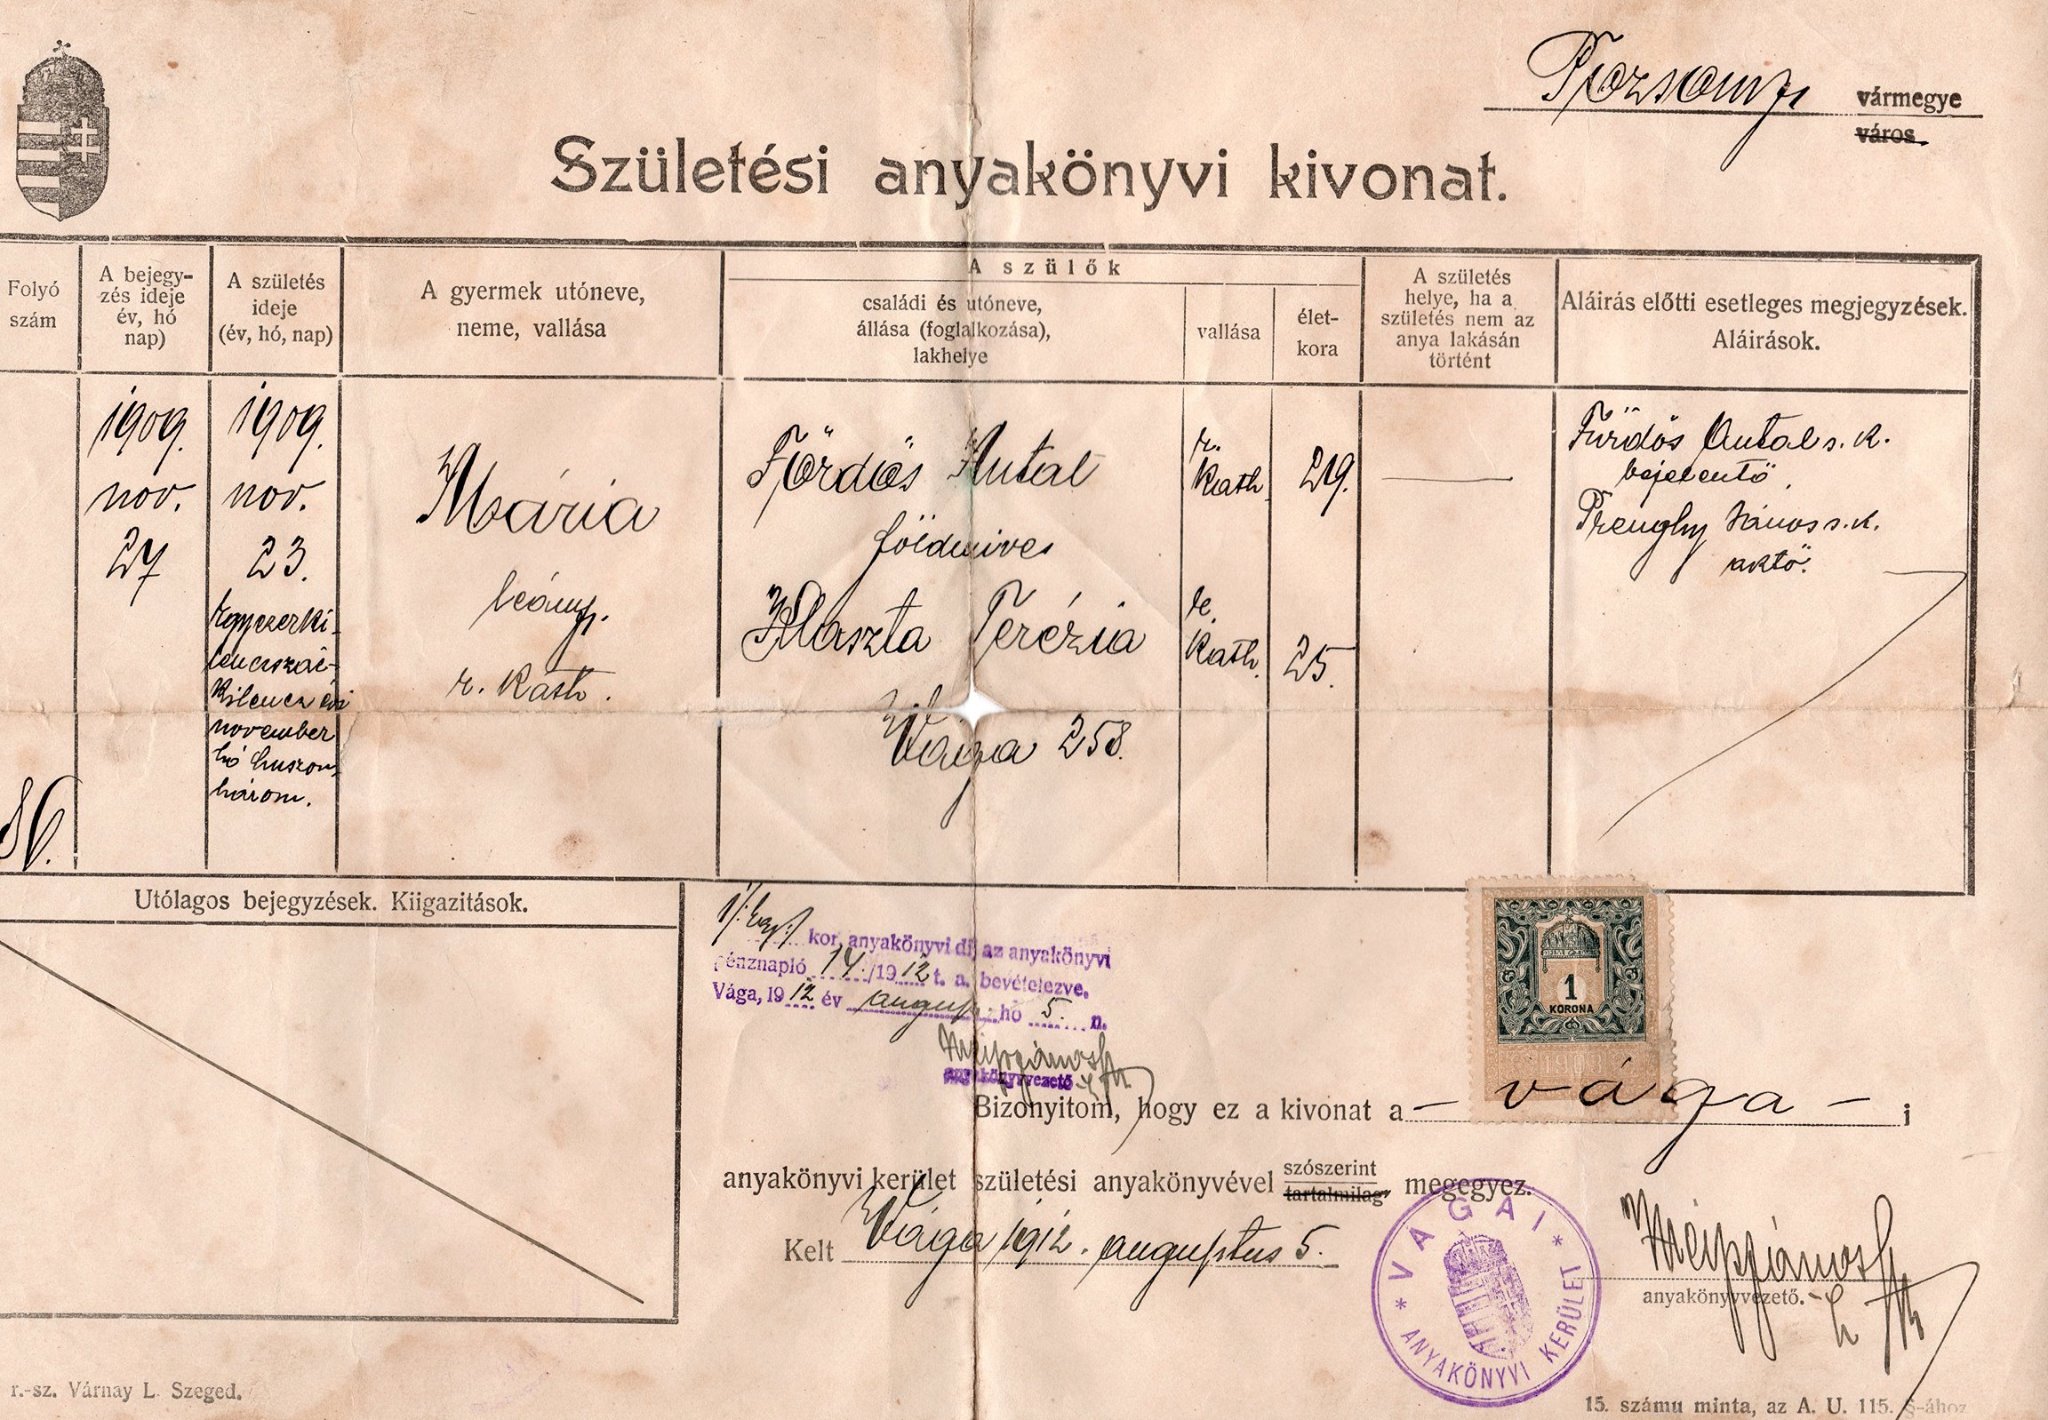 Pozsony vármegye
város.
Születési anyakönyvi kivonat.
Folyó
szám
A bejegy-
zés ideje
év, hó
nap)
A születés
ideje
(év, hó, nap)
A gyermek utóneve,
neme, vallása
A szülők
családi és utóneve,
állása (foglalkozása),
lakhelye
vallása
élet-
kora
A születés
helye, ha a
születés nem az
anya lakásán
történt
Aláirás előtti esetleges megjegyzések.
Aláirások.
86.
1909.
nov.
27
1909.
nov.
23.
Egyezerki-
lencszáz-
kilencz évi
november
hó huszon-
három.
Mária
leány.
r. kath.
Fördős Antal
földmives
Klaszta Terézia
Vága 258.
r.
kath
r.
kath.
29.
25.
Fürdős Antal s. k.
bejelentő.
János s. k.
Utólagos bejegyzések. Kiigazitások.
1/:egy:/ kor. anyakönyvi dij az anyakönyvi
pénznapló 14./1912 t. a. bevételezve.
Vága, 1912 év augusz. hó 5. n.
anyakönyvvezető
1
KORONA
Bizonyitom, hogy ez a kivonat a – vága – i
anyakönyvi kerület születési anyakönyvével szószerint
tartalmilag megegyez.
Kelt Vága 1912. augusztus 5.
* VÁGAI * ANYAKÖNYVI KERÜLET
anyakönyvvezető.
r.-sz. Várnay L. Szeged.
15. számu minta, az A. U. 115. §-ához